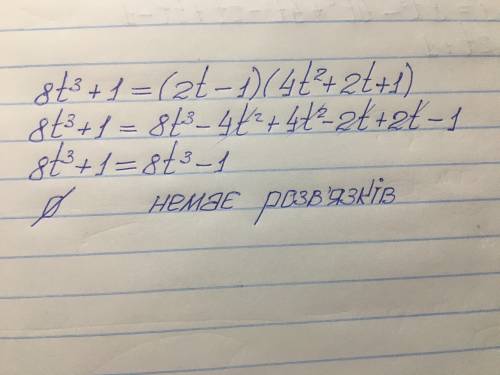 8t³ + 1 = (2t - 1)(4t² + 2t + 1)
8t³ + 1 = 8t³ - 4t² + 4t² - 2t + 2t - 1
8t³ + 1 = 8t³ - 1
∅ немає розв'язків